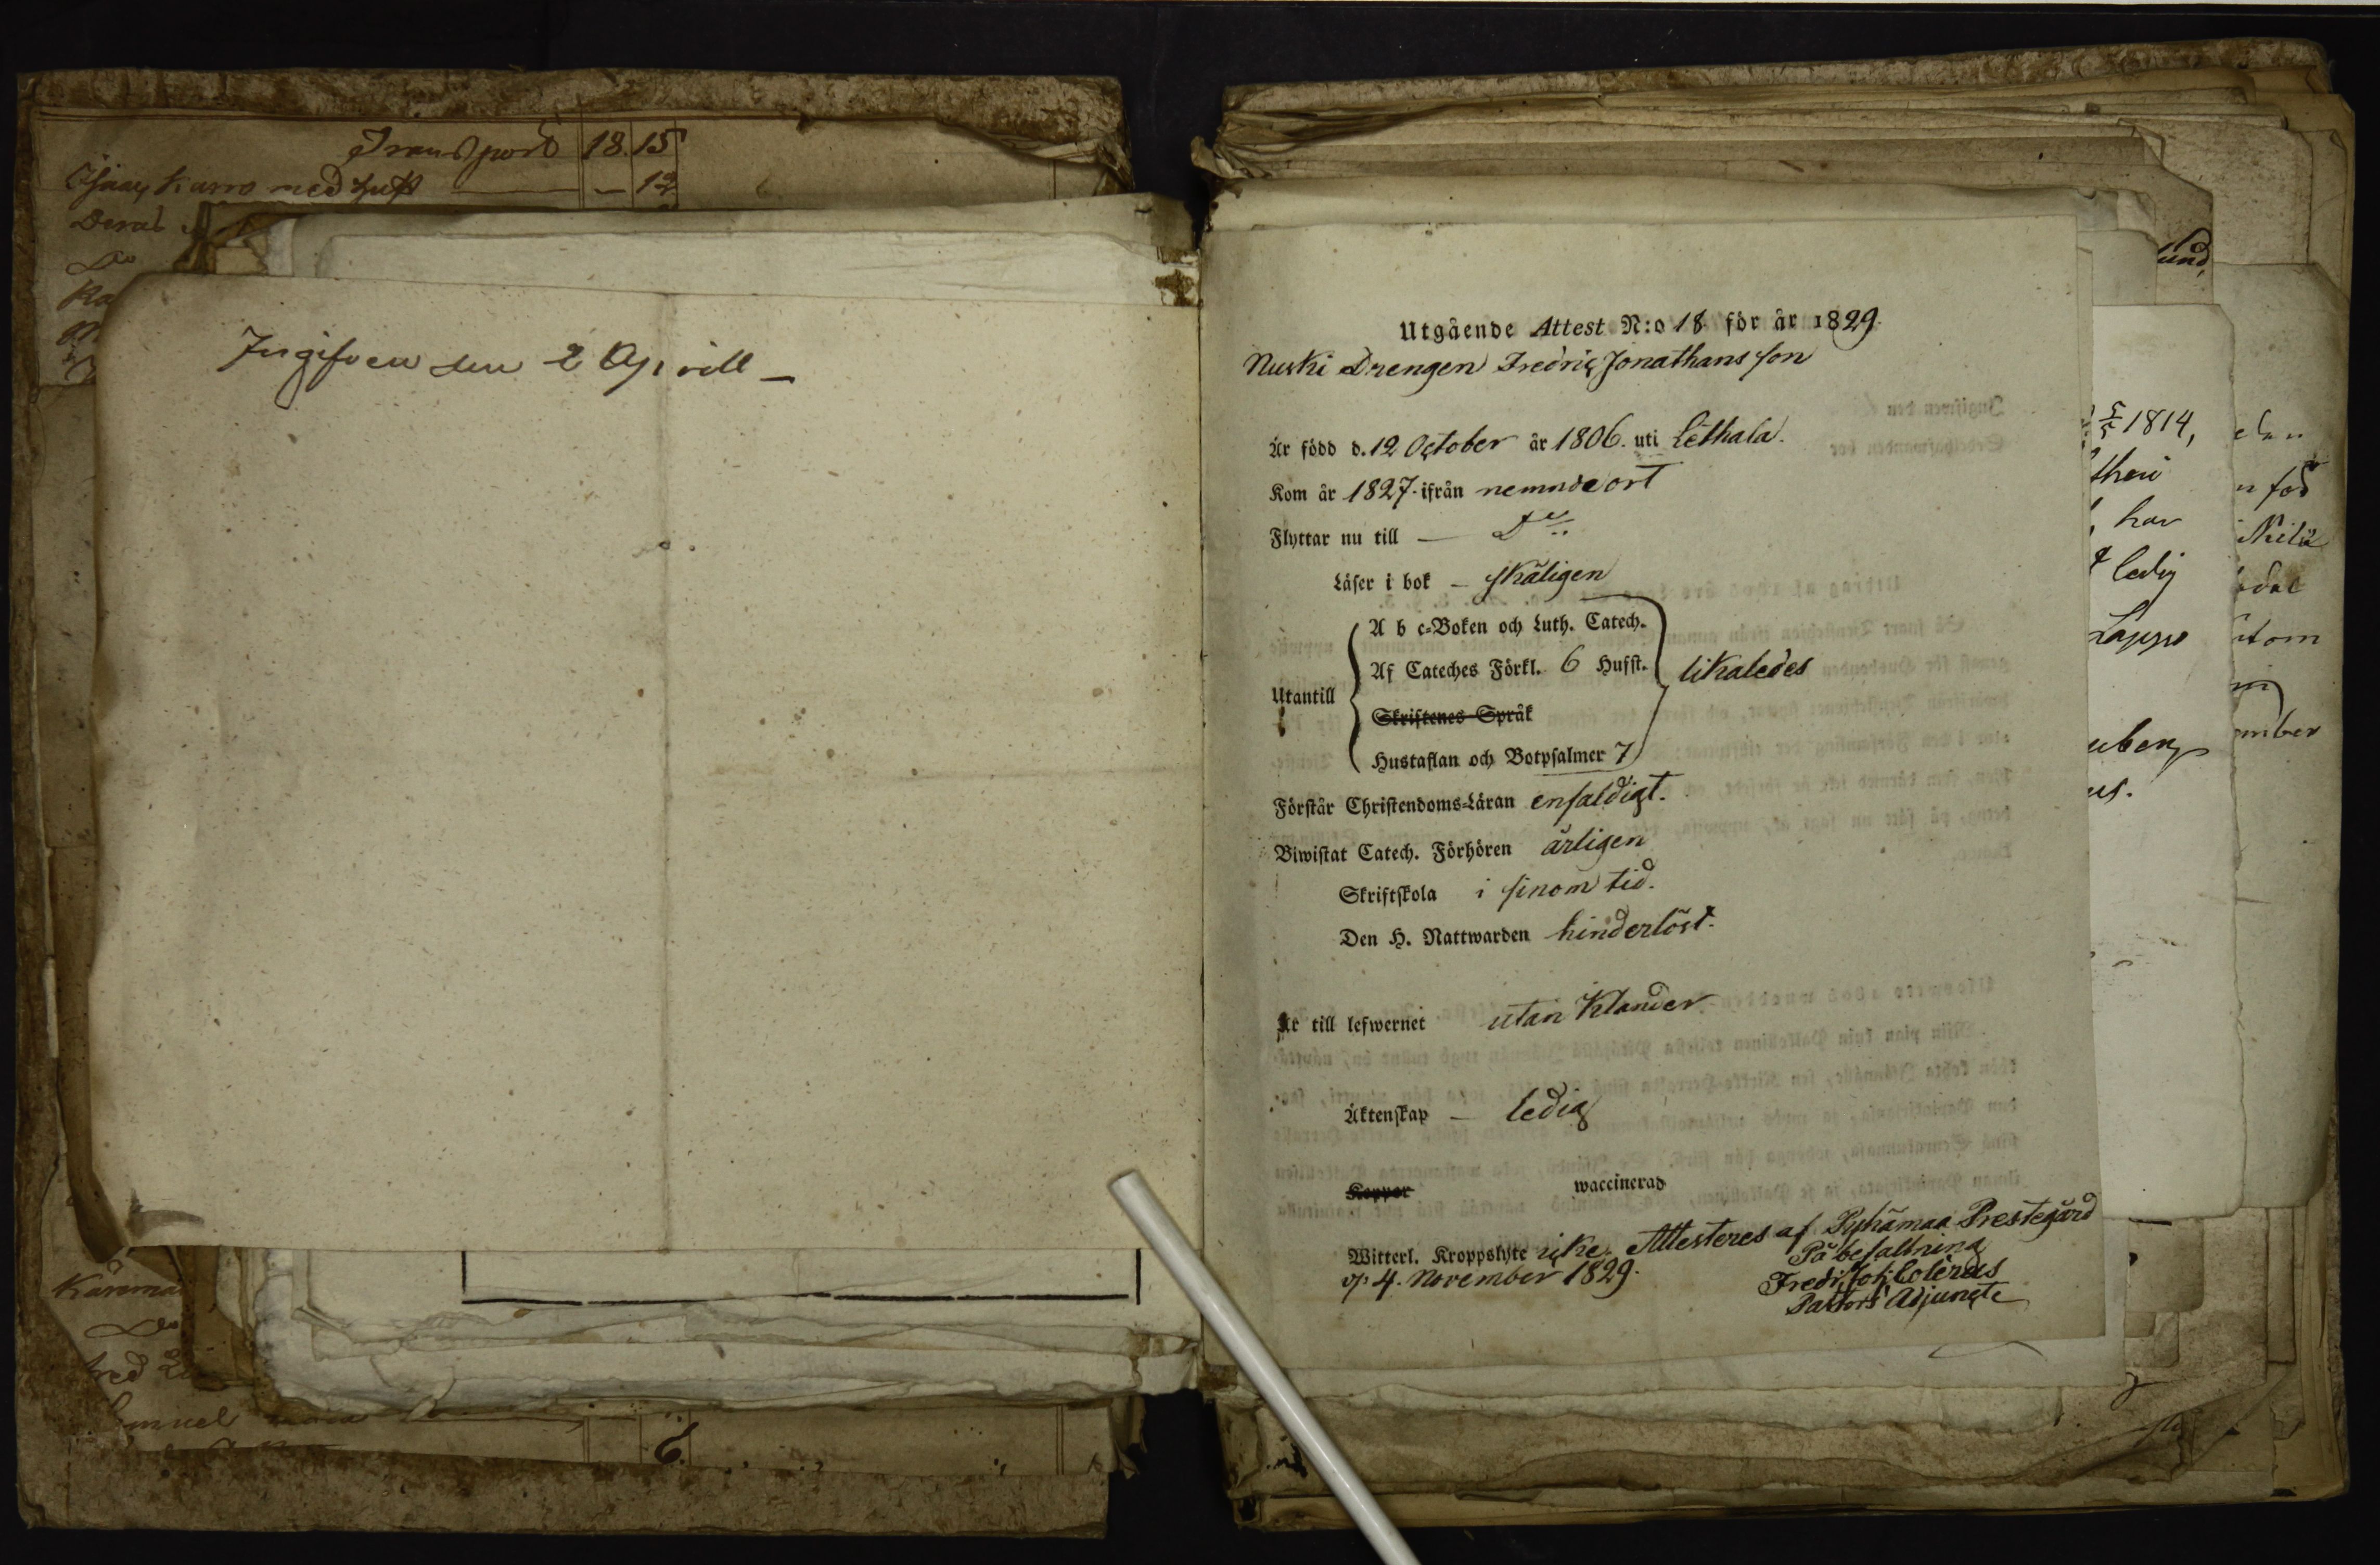 Transport 18. 15
med hust — — 12
Ingifven den 2 April —
Samuel
6.
Utgående Attest N:o 18 för år 1829.
Nuski Drengen Fredric Jonathans son
Är född d. 12 October år 1806. uti Lethala.
Kom år 1827. ifrån nemnde ort
Flyttar nu till — Do
Läser i bok — skäligen
A b c-Boken och Luth. Catech.
Af Cateches Förkl. 6 Hufst. likaledes
Utantill
Skriftenes Språk
Hustaflan och Botpsalmer 7
Förstår Christendoms-Läran enfaldigt.
Biwistat Catech. Förhören årligen
Skriftskola i sinom tid.
Den H. Nattwarden hinderlöst.
Är till lefwernet utan klander
Äktenskap — ledig
Koppor waccinerad
Witterl. Kroppslyte icke. Attesteres af Pyhämaa Prestegård
d. 4. November 1829. På befallning
Fredr. Joh. Colerus
Pastors Adjuncte
1814,
har
ledig
Lappo